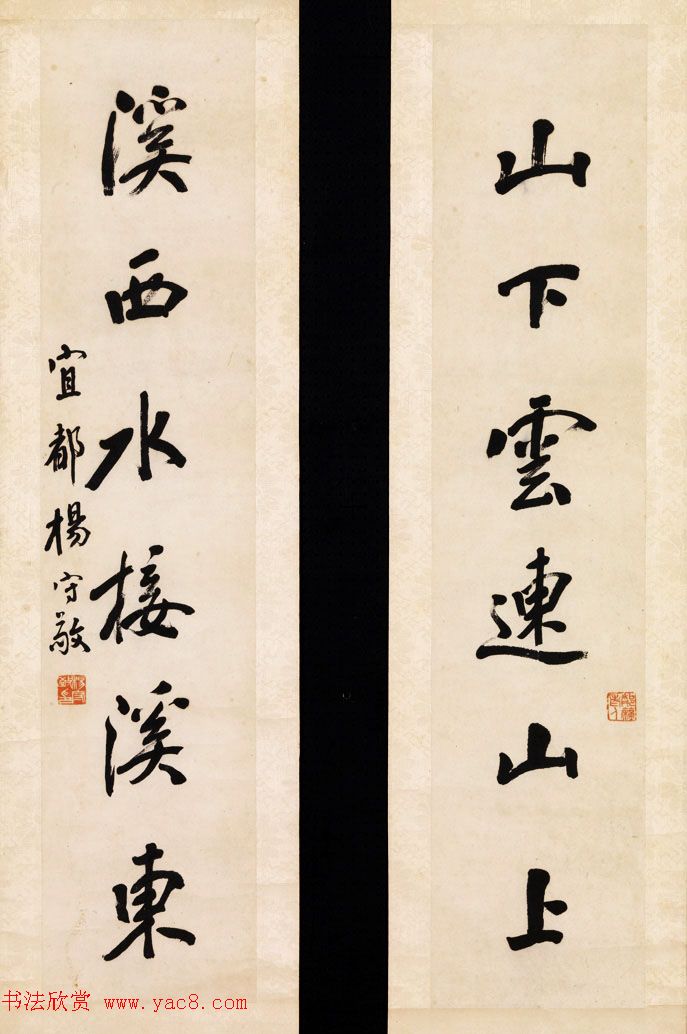 山下雲連山上
溪西水接溪東
宜都楊守敬
书法欣赏 www.yac8.com